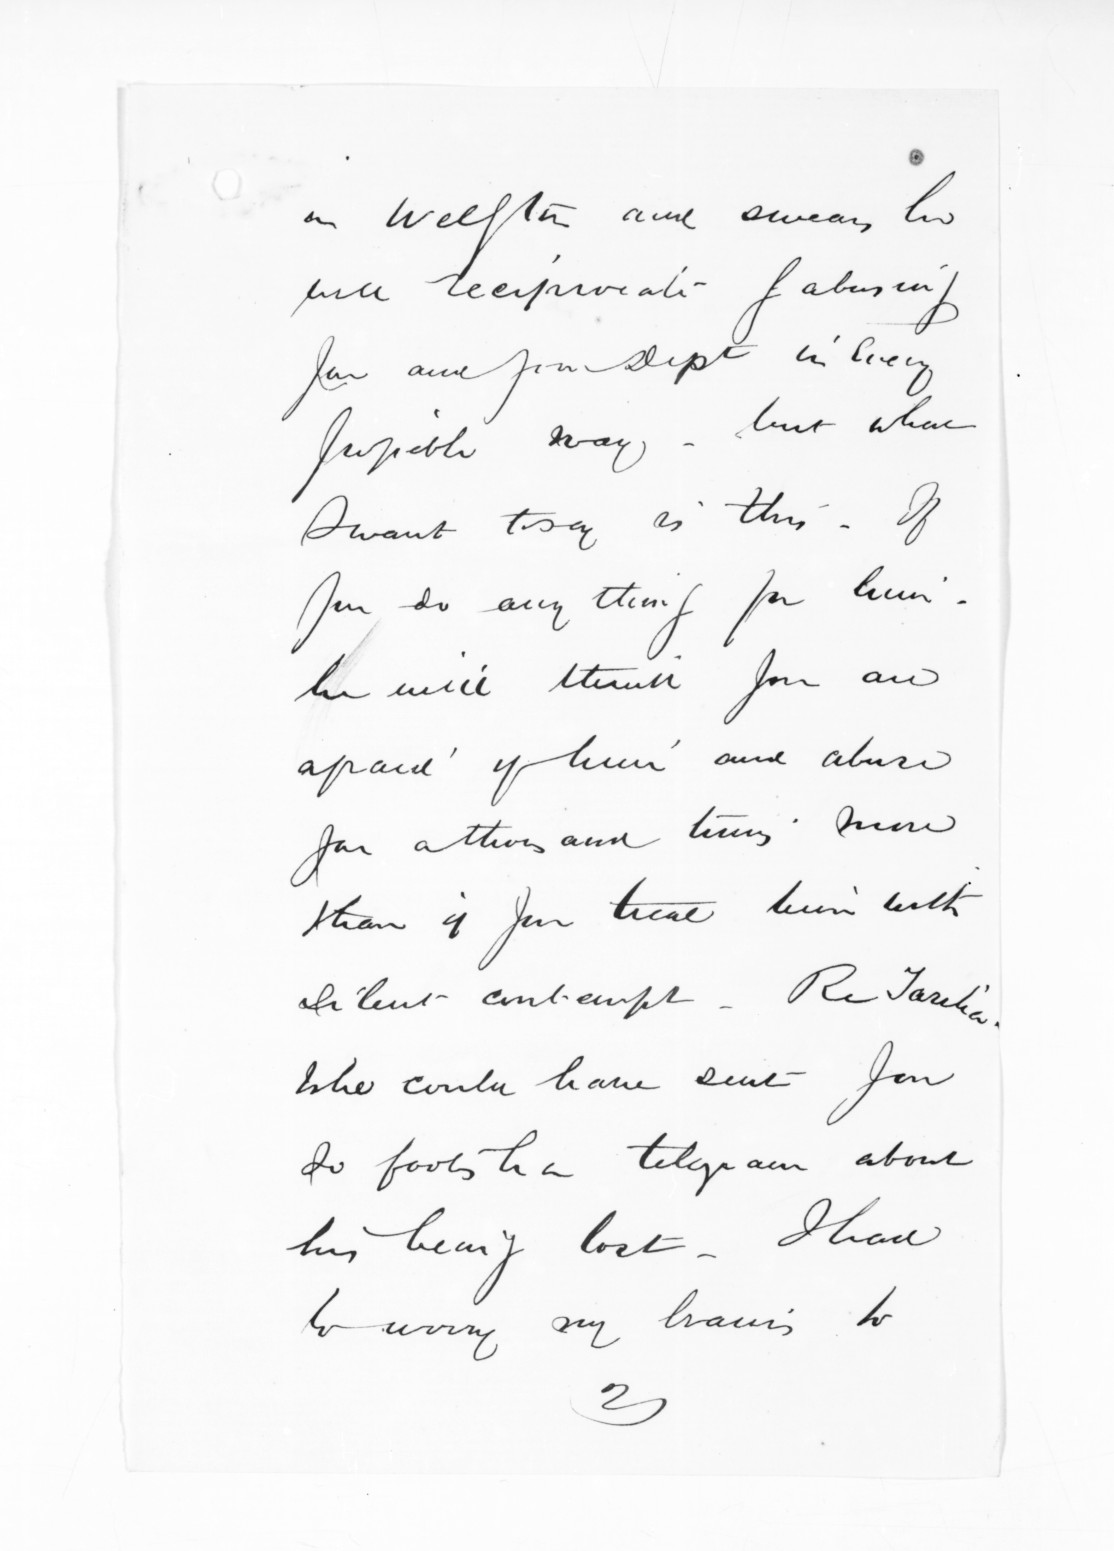 in Welgtn and swears he
will reciprocate by abusing
you and your Dept in every
possible way - but what
I want to say is this - If
you do any thing for him -
he will think you are
afraid of him and abuse
you a thousand times more
than if you treat him with
silent contempt - Re Tareha.
Who could have sent you
so foolish a telegram about
his being lost - I had
to worry my brains to
2